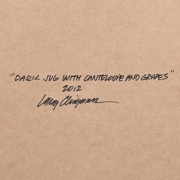 "DARK JUG WITH CANTELOUPE AND GRAPES"
2012